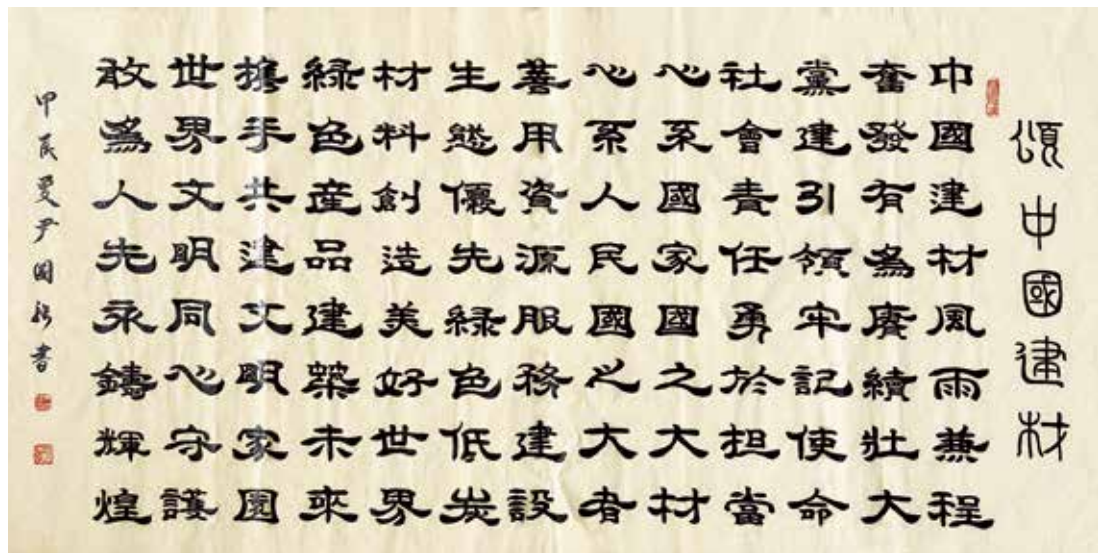 頌中國建材
中國建材風雨兼程
奮發有爲賡續壯大
黨建引領牢記使命
社會責任勇於担當
心系國家國之大材
心系人民國之大者
善用資源服務建設
生態優先緑色低炭
材料創造美好世界
緑色産品建築未來
攜手共建文明家園
世界文明同心守護
敢爲人先永鑄輝煌
甲辰夏尹國書